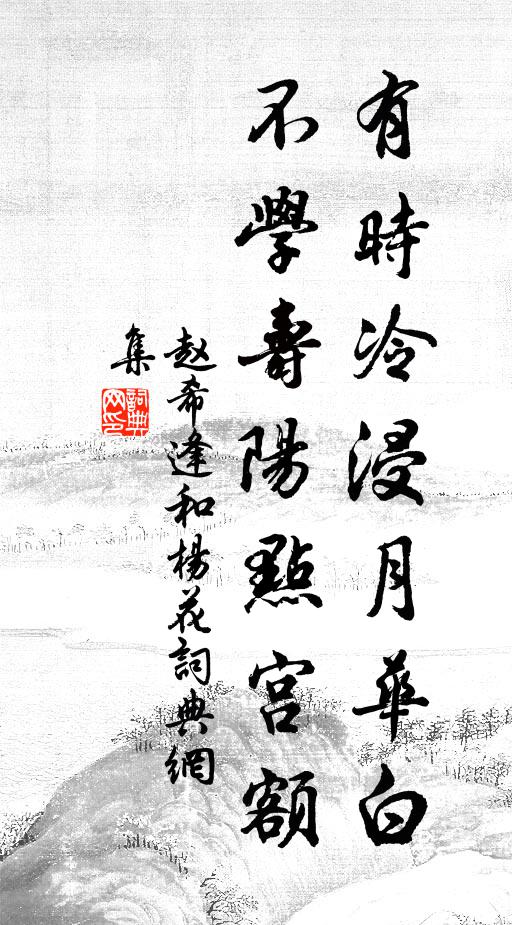 有時冷浸月華白
不學壽陽點宮額
赵希逢和楊花詞典網
集
詞典
网印